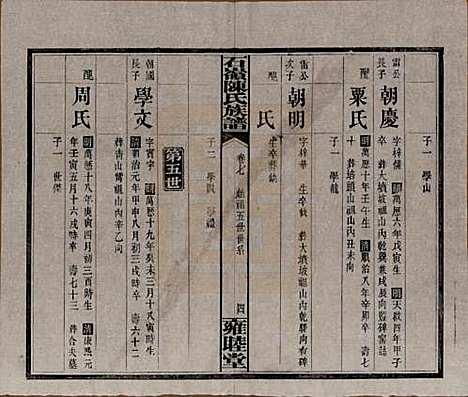 雷公
長子
朝慶
字梓備
明萬歷六年戊寅生
明天啟四年甲子
葬大墳坡福山內乾巽兼戌辰向監碑窰誌
子一 學山
配
粟氏
明萬歷十年壬午生
清順治八年辛卯歿
壽七
十
葬培頭山祖山內丑未向
子一 學龍
雷公
次子
朝明
字梓華
生卒缺
葬大墳坡福山內乾腰向有碑
配
氏
生卒葬缺
子二 學禮
石嶺陳氏族譜
卷七
五世世系
四
雍睦堂
第五世
朝國
長子
學文
字寳宇
明萬歷十九年癸未三月十八寅時生
治元年甲申八月初三戌時卒
壽六十二
葬青山嘴祖山內辛乙向
配
周氏
明萬歷十八年庚寅四月初三酉時生
清康熙元
年壬寅五月十六戌時卒
壽七十三
葬合夫墓
子一 世傑